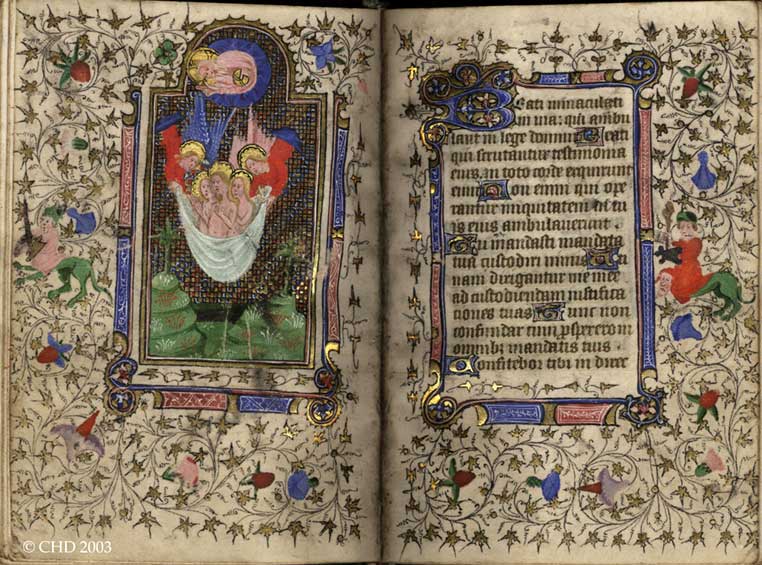 Beati inmaculati
in via: qui ambu
lant in lege domini Beati
qui scrutantur testimonia
eius in toto corde exquirunt
eum Non enim qui ope
rantur iniquitatem in vi
is eius ambulaverunt
Tu mandasti mandata
tua custodiri nimis Uti
nam dirigantur vie mee
ad custodiendum iustifica
tiones tuas Tunc non
confundar cum perspexero in
omnibus mandatis tuis
Confitebor tibi in direc
© CHD 2003